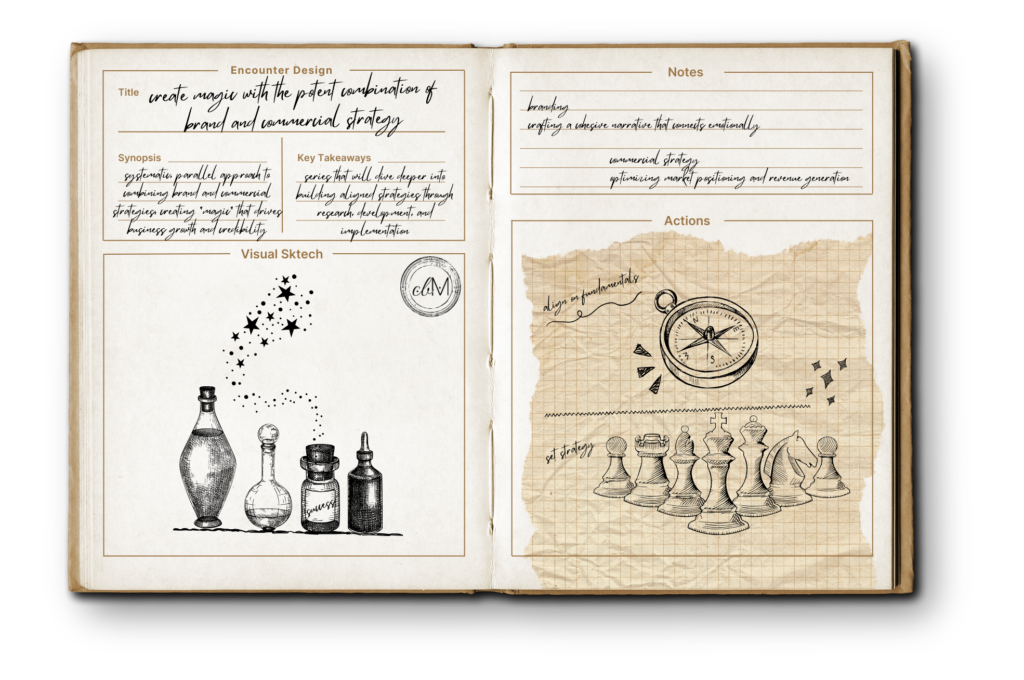 Encounter Design
Title
create magic with the potent combination of
brand and commercial strategy
Synopsis
systematic, parallel approach to
combining brand and commercial
strategies, creating "magic" that drives
business growth and credibility
Key Takeaways
series that will dive deeper into
building aligned strategies through
research, development, and
implementation
Visual Sktech
success
Notes
branding
crafting a cohesive narrative that connects emotionally
commercial strategy
optimizing market positioning and revenue generation
Actions
align on fundamentals
N
E
S
set strategy